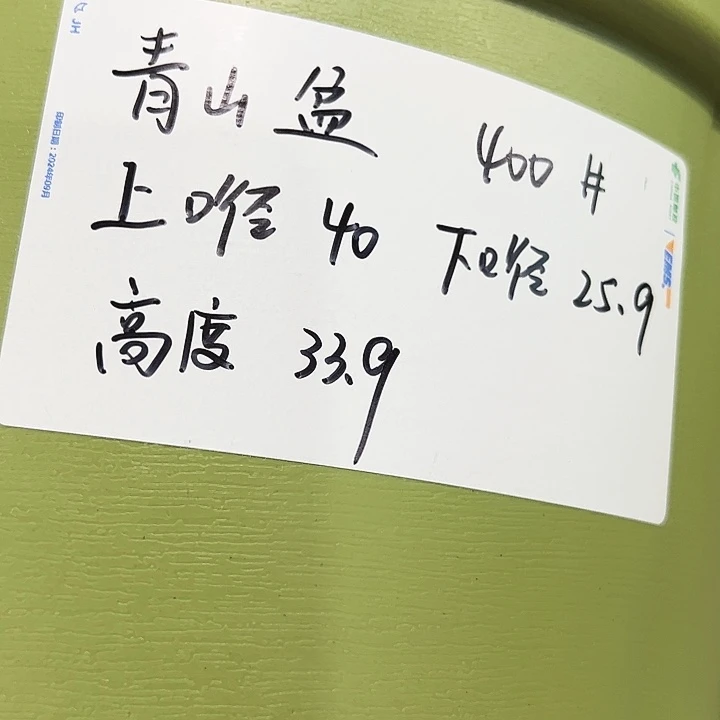 青山盆 400#
上口径 40 下口径 25.9
高度 33.9
印制日期:2024年09月
EMS